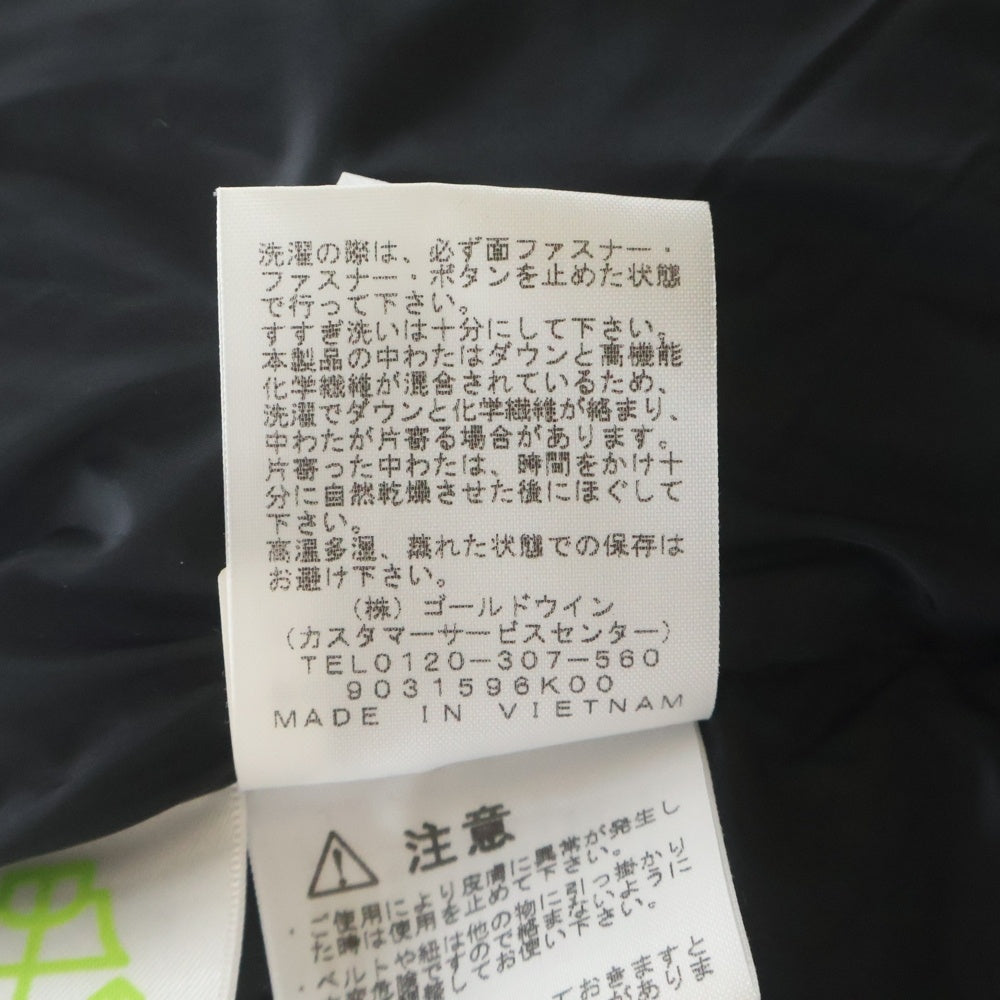 洗濯の際は、必ず面ファスナー・
ファスナー・ボタンを止めた状態
で行って下さい。
すすぎ洗いは十分にして下さい。
本製品の中わたはダウンと高機能
化学繊維が混合されているため、
洗濯でダウンと化学繊維が絡まり、
中わたが片寄る場合があります。
片寄った中わたは、時間をかけ十
分に自然乾燥させた後にほぐして
下さい。
高温多湿、蒸れた状態での保存は
お避け下さい。
(株)ゴールドウイン
(カスタマーサービスセンター)
TEL0120-307-560
9031596K00
MADE IN VIETNAM
注意
ご使用により皮膚に異常が発生し
た時は使用を止めて下さい。